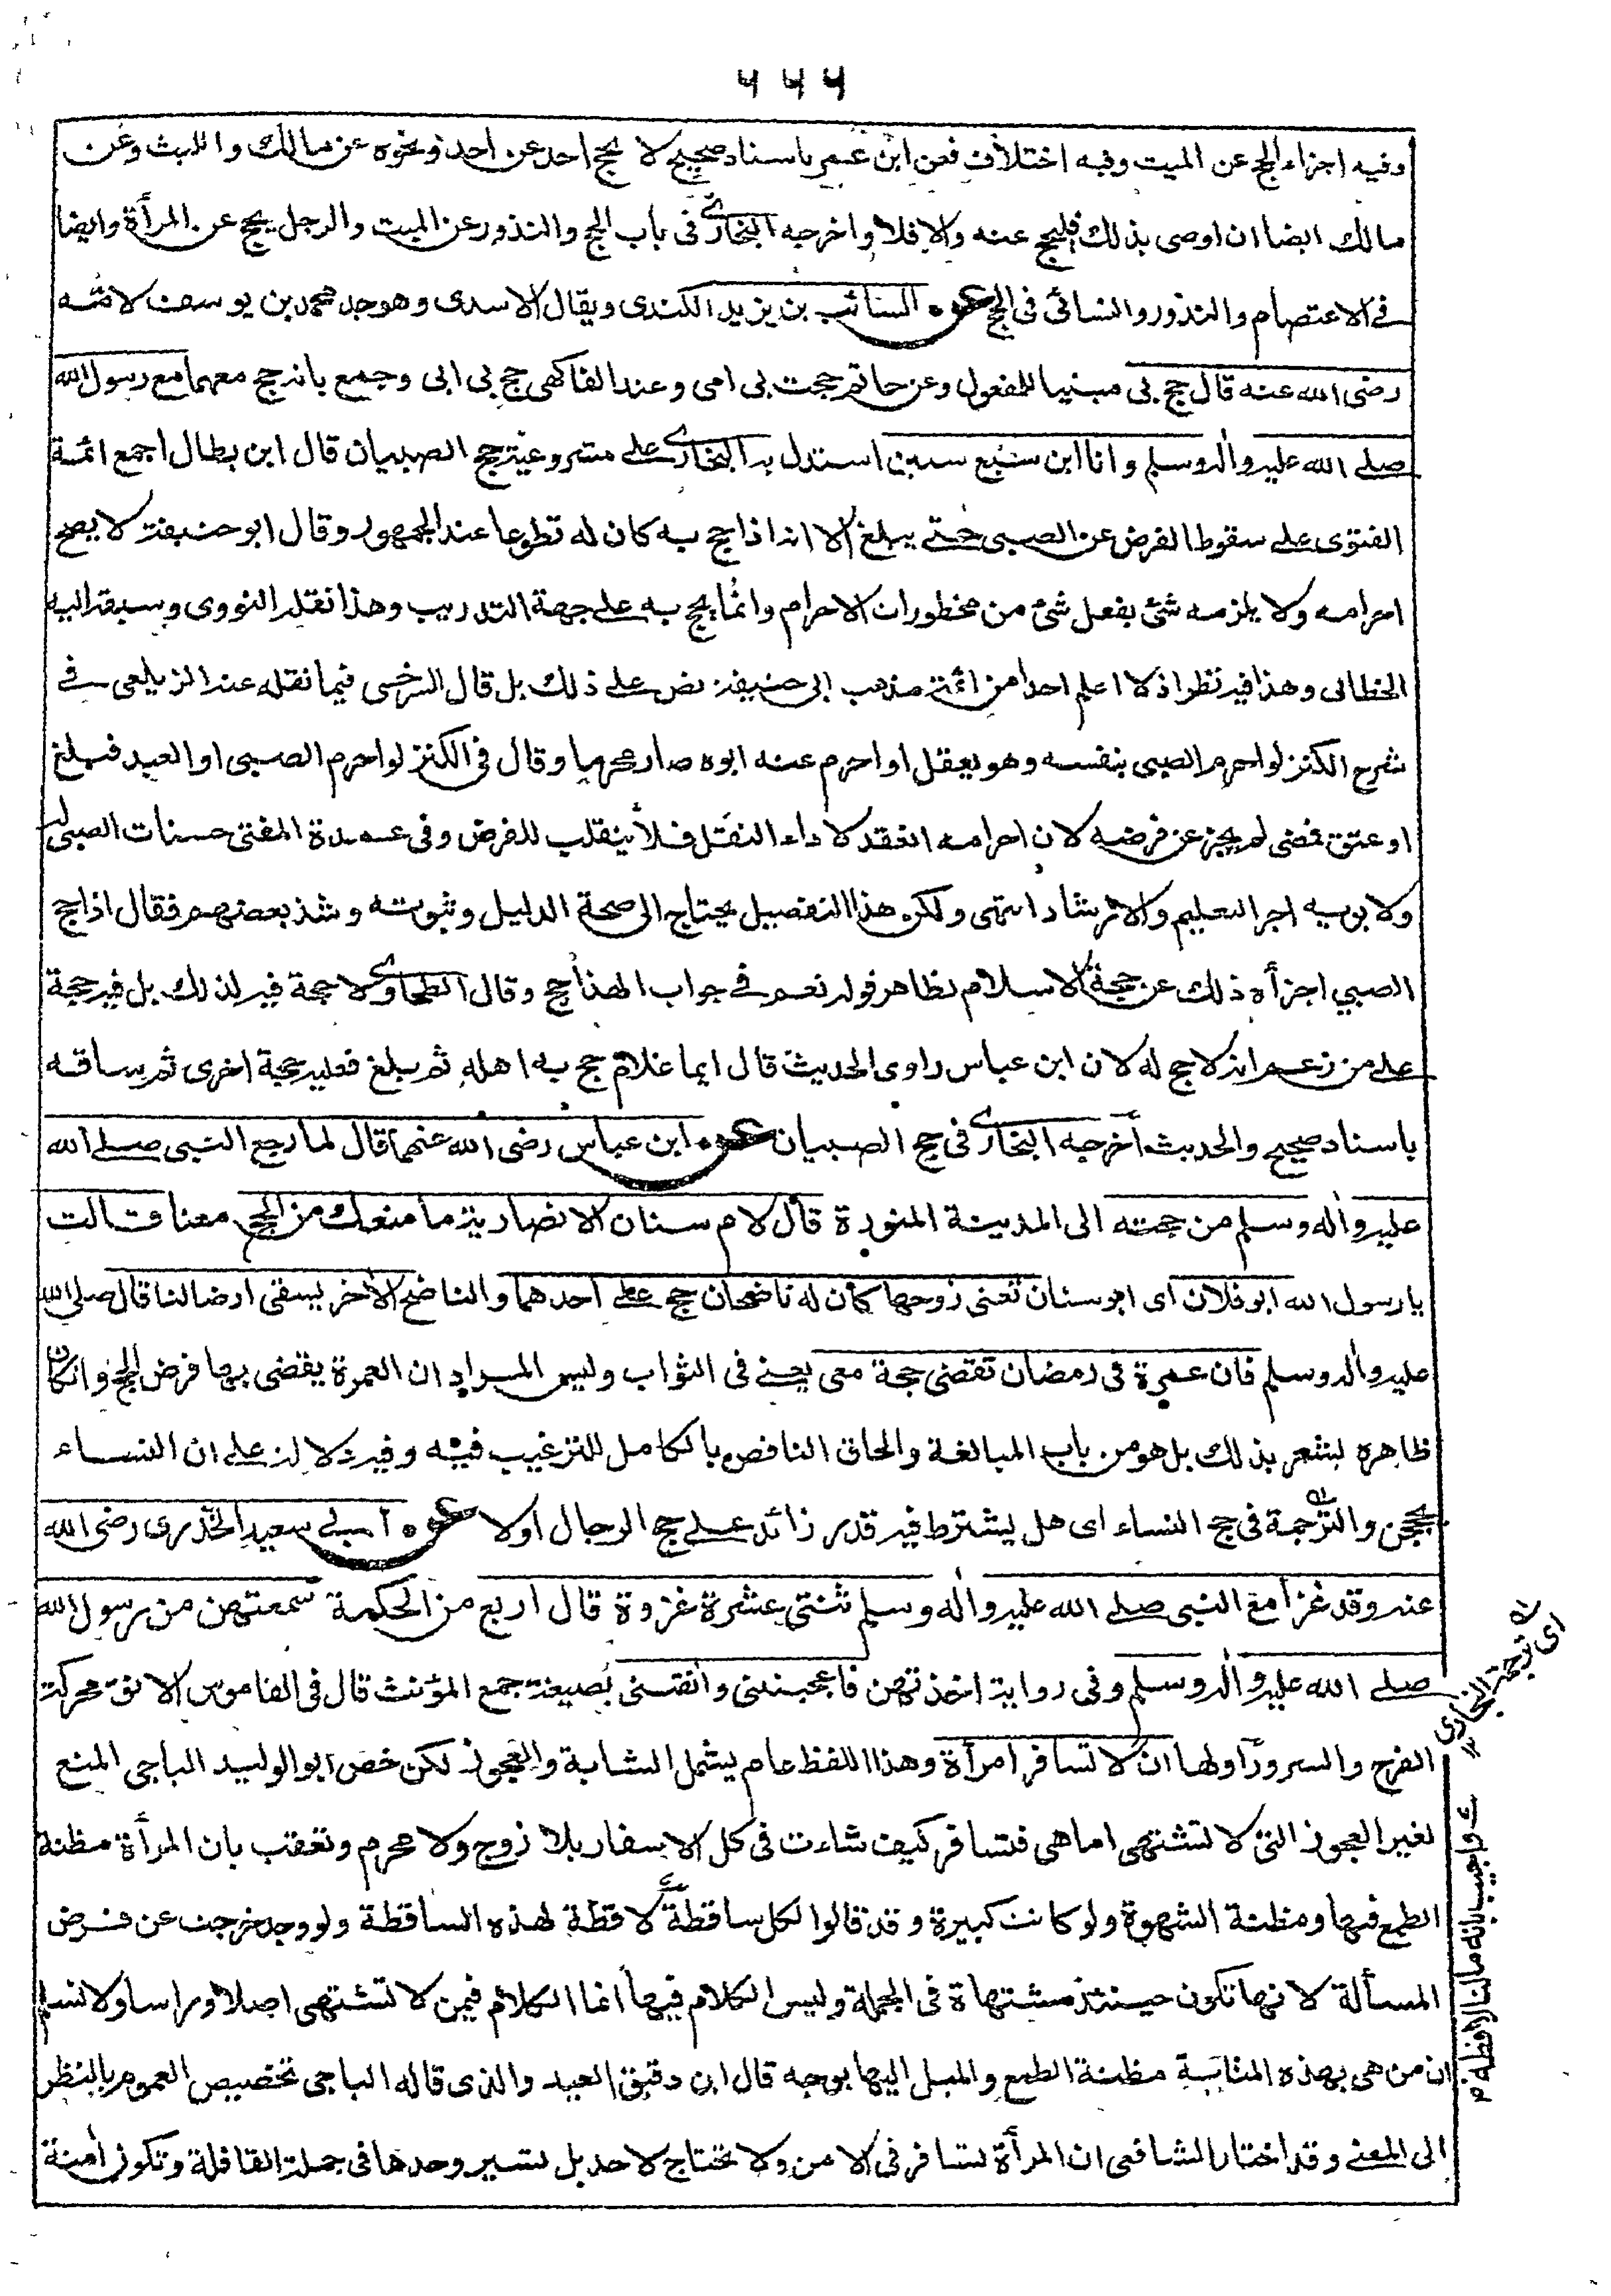 ٦٦٦
وفيه اجزاء الحج عن الميت وفيه اختلاف فعن ابن عمر باسناد صحيح لا يحج احد عن احد ونحوه عن مالك والليث وعن
مالك ايضا ان اوصى بذلك فليحج عنه والا فلا واخرجه البخارى فى باب الحج والنذور عن الميت والرجل يحج عن المرأة وايضا
فى الاعتصام والنذور والنسائى فى الحج عن السائب بن يزيد الكندى ويقال الاسدى وهو جد محمد بن يوسف لامه
رضى الله عنه قال حج بى مبنيا للمفعول وعن حاتم حجت بى امى وعند الفاكهى حج بى ابى وجمع بانه حج معهما مع رسول الله
صلى الله عليه واله وسلم وانا ابن سبع سنين استدل به البخارى على مشروعية حج الصبيان قال ابن بطال اجمع ائمة
الفتوى على سقوط الفرض عن الصبى حتى يبلغ الا انه اذا حج به كان له تطوعا عند الجمهور وقال ابو حنيفة لا يصح
احرامه ولا يلزمه شئ بفعل شئ من محظورات الاحرام وانما يحج به على جهة التدريب وهذا نقله النووى وسبقه اليه
الخطابى وهذا فيه نظر اذ لا اعلم احدا من ائمة مذهب ابى حنيفة نص على ذلك بل قال السرخسى فيما نقله عنه الزيلعى فى
شرح الكنز لو احرم الصبى بنفسه وهو يعقل او احرم عنه ابوه صار محرما وقال فى الكنز لو احرم الصبى او العبد فبلغ
او عتق فمضى لم يجز عن فرضه لان احرامه انعقد لاداء النفل فلا ينقلب للفرض وفى عمدة المفتى حسنات الصبى له
ولابويه اجر التعليم والارشاد انتهى ولكن هذا التفصيل يحتاج الى صحة الدليل وثبوته وشذ بعضهم فقال اذا حج
الصبي اجزأه ذلك عن حجة الاسلام لظاهر قوله نعم فى جواب الهذا حج وقال الطحاوى لا حجة فيه لذلك بل فيه حجة
على من زعم انه لا حج له لان ابن عباس راوى الحديث قال ايما غلام حج به اهله ثم بلغ فعليه حجة اخرى ثم ساقه
باسناد صحيح والحديث أخرجه البخارى فى حج الصبيان عن ابن عباس رضى الله عنهما قال لما رجع النبى صلى الله
عليه واله وسلم من حجته الى المدينة المنورة قال لام سنان الانصارية ما منعك من الحج معنا قالت
يا رسول الله ابو فلان اى ابو سنان تعنى زوجها كان له ناضحان حج على احدهما والناضح الأخر يسقى ارضا لنا قال صلى الله
عليه واله وسلم فان عمرة فى رمضان تقضى حجة معى يعنى فى الثواب وليس المراد ان العمرة يقضى بها فرض الحج وان كان
ظاهره يشعر بذلك بل هو من باب المبالغة والحاق الناقص بالكامل للترغيب فيه وفيه دلالة على ان النساء
يحججن والترجمة فى حج النساء اى هل يشترط فيه قدر زائد على حج الرجال او لا عن أبى سعيد الخدرى رضى الله
عنه وقد غزا مع النبى صلى الله عليه واله وسلم ثنتى عشرة غزوة قال اربع من الحكمة سمعتهن من رسول الله
صلى الله عليه واله وسلم وفى رواية اخذتهن فاعجبننى وانقننى بصيغة جمع المؤنث قال فى القاموس الانق محركة
الفرح والسرور أولها ان لا تسافر امرأة وهذا اللفظ عام يشمل الشابة والعجوز لكن خص ابو الوليد الباجى المنع
لغير العجوز التى لا تشتهى اما هى فتسافر كيف شاءت فى كل الاسفار بلا زوج ولا محرم وتعقب بان المرأة مظنة
الطمع فيها ومظنة الشهوة ولو كانت كبيرة وقد قالوا لكل ساقطة لاقطة لهذه الساقطة ولو وجد خرجت عن فرض
المسألة لانها تكون حينئذ مشتهاة فى الجملة وليس الكلام فيها انما الكلام فيمن لا تشتهى اصلا ورأسا ولا نسلم
ان من هى بهذه المثابة مظنة الطمع والميل اليها بوجه قال ابن دقيق العيد والذى قاله الباجى تخصيص العموم بالنظر
الى المعنى وقد اختار الشافعى ان المرأة تسافر فى الامن ولا تحتاج لاحد بل تسير وحدها فى جملة القافلة وتكون أمنة
اى ترجمة البخارى ١٢
واجيب بانه ما لنا لاقطة